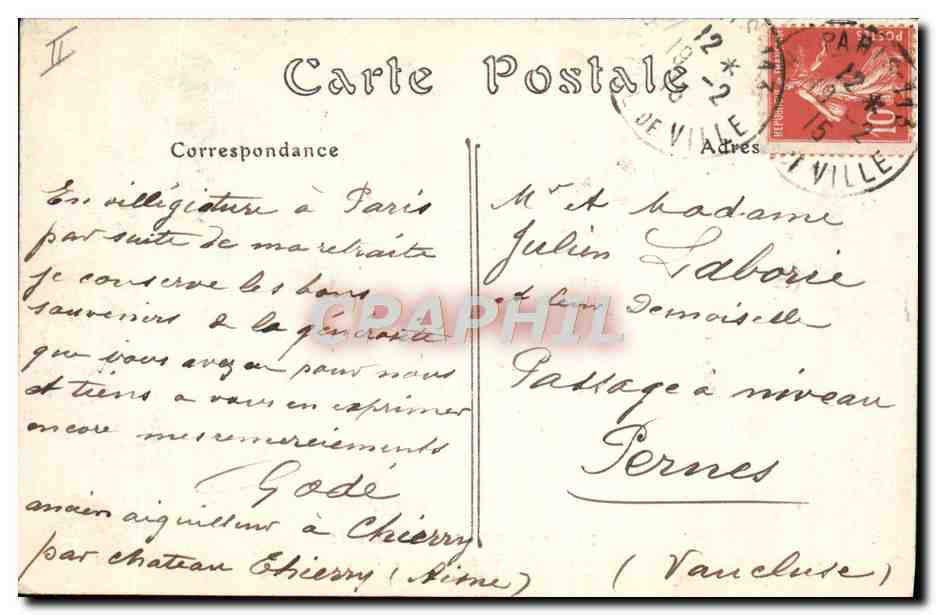 II
Carte Postale
Correspondance
Adres
En villégiature à Paris
par suite de ma retraite
je conserve les bons
souvenirs de la générosité
que vous avez eu pour nous
et tiens a vous en exprimer
encore mes remerciements
Godé
ancien aiguilleur à Chierry
par chateau Thierry (Aisne)
Mr et Madame
Julien Laborie
et leur Demoiselle
Passage à niveau
Pernes
(Vaucluse)
CPAPHIL
12 *
-2
DE VILLE
PARIS-113
12 *
19-2
15
VILLE
POSTES
10